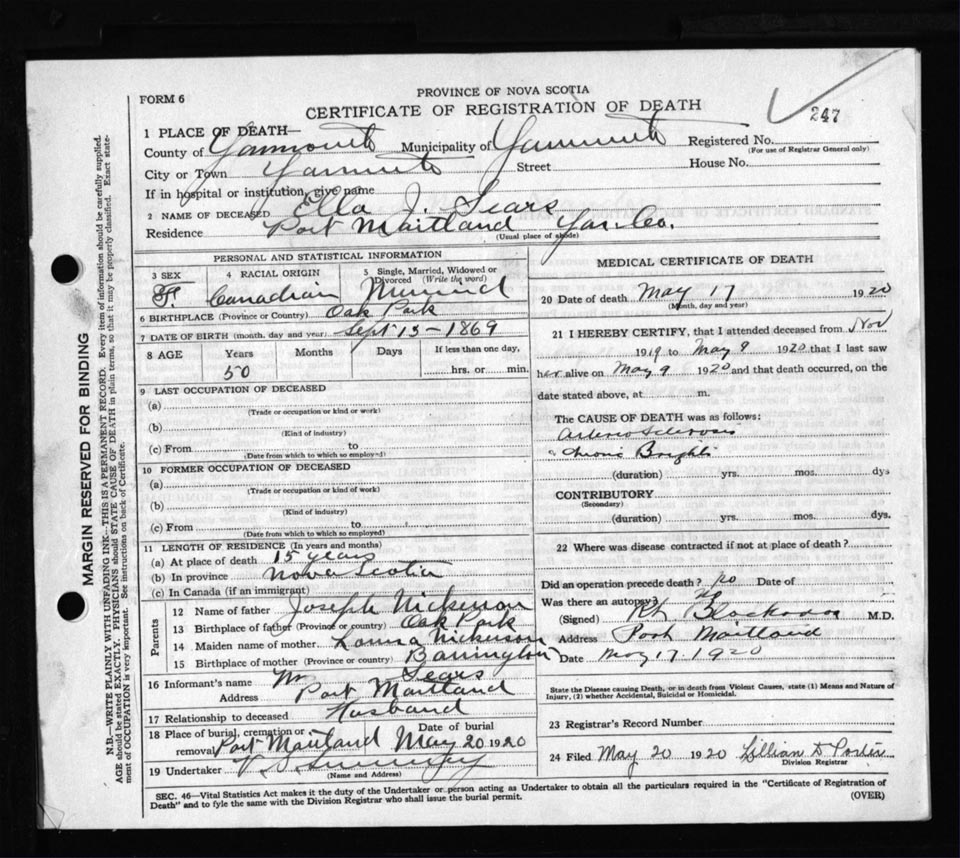 FORM 6
PROVINCE OF NOVA SCOTIA
CERTIFICATE OF REGISTRATION OF DEATH
247
1 PLACE OF DEATH—
County of Yarmouth Municipality of Yarmouth Registered No.
(For use of Registrar General only)
City or Town Yarmouth Street House No.
If in hospital or institution, give name
2 NAME OF DECEASED Ella J. Sears
Residence Port Maitland Yar. Co.
(Usual place of abode)
PERSONAL AND STATISTICAL INFORMATION
3 SEX 4 RACIAL ORIGIN 5 Single, Married, Widowed or Divorced (Write the word)
F. Canadian Married
6 BIRTHPLACE (Province or Country) Oak Park
7 DATE OF BIRTH (month, day and year) Sept 13 - 1869
8 AGE Years Months Days If less than one day,
50 hrs. or min.
9 LAST OCCUPATION OF DECEASED
(a)
(Trade or occupation or kind or work)
(b)
(Kind of industry)
(c) From to
(Date from which to which so employed)
10 FORMER OCCUPATION OF DECEASED
(a)
(Trade or occupation or kind of work)
(b)
(Kind of industry)
(c) From to
(Date from which to which so employed)
11 LENGTH OF RESIDENCE (In years and months)
(a) At place of death 15 years
(b) In province Nova Scotia
(c) In Canada (if an immigrant)
Parents
12 Name of father Joseph Nickerson
13 Birthplace of father (Province or country) Oak Park
14 Maiden name of mother Nickerson
15 Birthplace of mother (Province or country) Barrington
16 Informant's name Sears
Address Port Maitland
17 Relationship to deceased Husband
18 Place of burial, cremation or removal Port Maitland Date of burial May 20 1920
19 Undertaker
(Name and Address)
MEDICAL CERTIFICATE OF DEATH
20 Date of death May 17 1920
(Month, day and year)
21 I HEREBY CERTIFY, that I attended deceased from Nov
1919 to May 9 1920 that I last saw
her alive on May 9 1920 and that death occurred, on the
date stated above, at m.
The CAUSE OF DEATH was as follows:
Arterio Sclerosis
Chronic Brights
(duration) yrs. mos. dys
CONTRIBUTORY
(Secondary)
(duration) yrs. mos. dys.
22 Where was disease contracted if not at place of death?
Did an operation precede death? no Date of
Was there an autopsy? no
(Signed) M.D.
Address Port Maitland
Date May 17. 1920
State the Disease causing Death, or in death from Violent Causes, state (1) Means and Nature of
Injury, (2) whether Accidental, Suicidal or Homicidal.
23 Registrar's Record Number
24 Filed May 20 1920 Lillian D Porter
Division Registrar
SEC. 46—Vital Statistics Act makes it the duty of the Undertaker or person acting as Undertaker to obtain all the particulars required in the "Certificate of Registration of
Death" and to fyle the same with the Division Registrar who shall issue the burial permit.
(OVER)
MARGIN RESERVED FOR BINDING
N.B.—WRITE PLAINLY WITH UNFADING INK—THIS IS A PERMANENT RECORD. Every item of information should be carefully supplied.
AGE should be stated EXACTLY. PHYSICIANS should STATE CAUSE OF DEATH in plain terms, so that it may be properly classified. Exact state-
ment of OCCUPATION is very important. See instructions on back of Certificate.